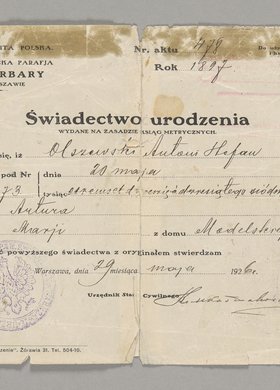 ITA POLSKA.
CKA PARAFJA
RBARY
SZAWIE
Nr. aktu 478
Rok 1897
Świadectwo urodzenia
WYDANE NA ZASADZIE KSIĄG METRYCZNYCH.
się, iż Olszewski Antoni Stefan
pod Nr dnia 20 maja
73. tysiąc ośmset dziewięćdziesiątego siódm
Artura
Marji z domu Modelski
powyższego świadectwa z oryginałem stwierdzam
Warszawa, dnia 29 miesiąca maja 1926 r.
Urzędnik Sta Cywilnego
zenie", Żórawia 31. Tel. 504-10.